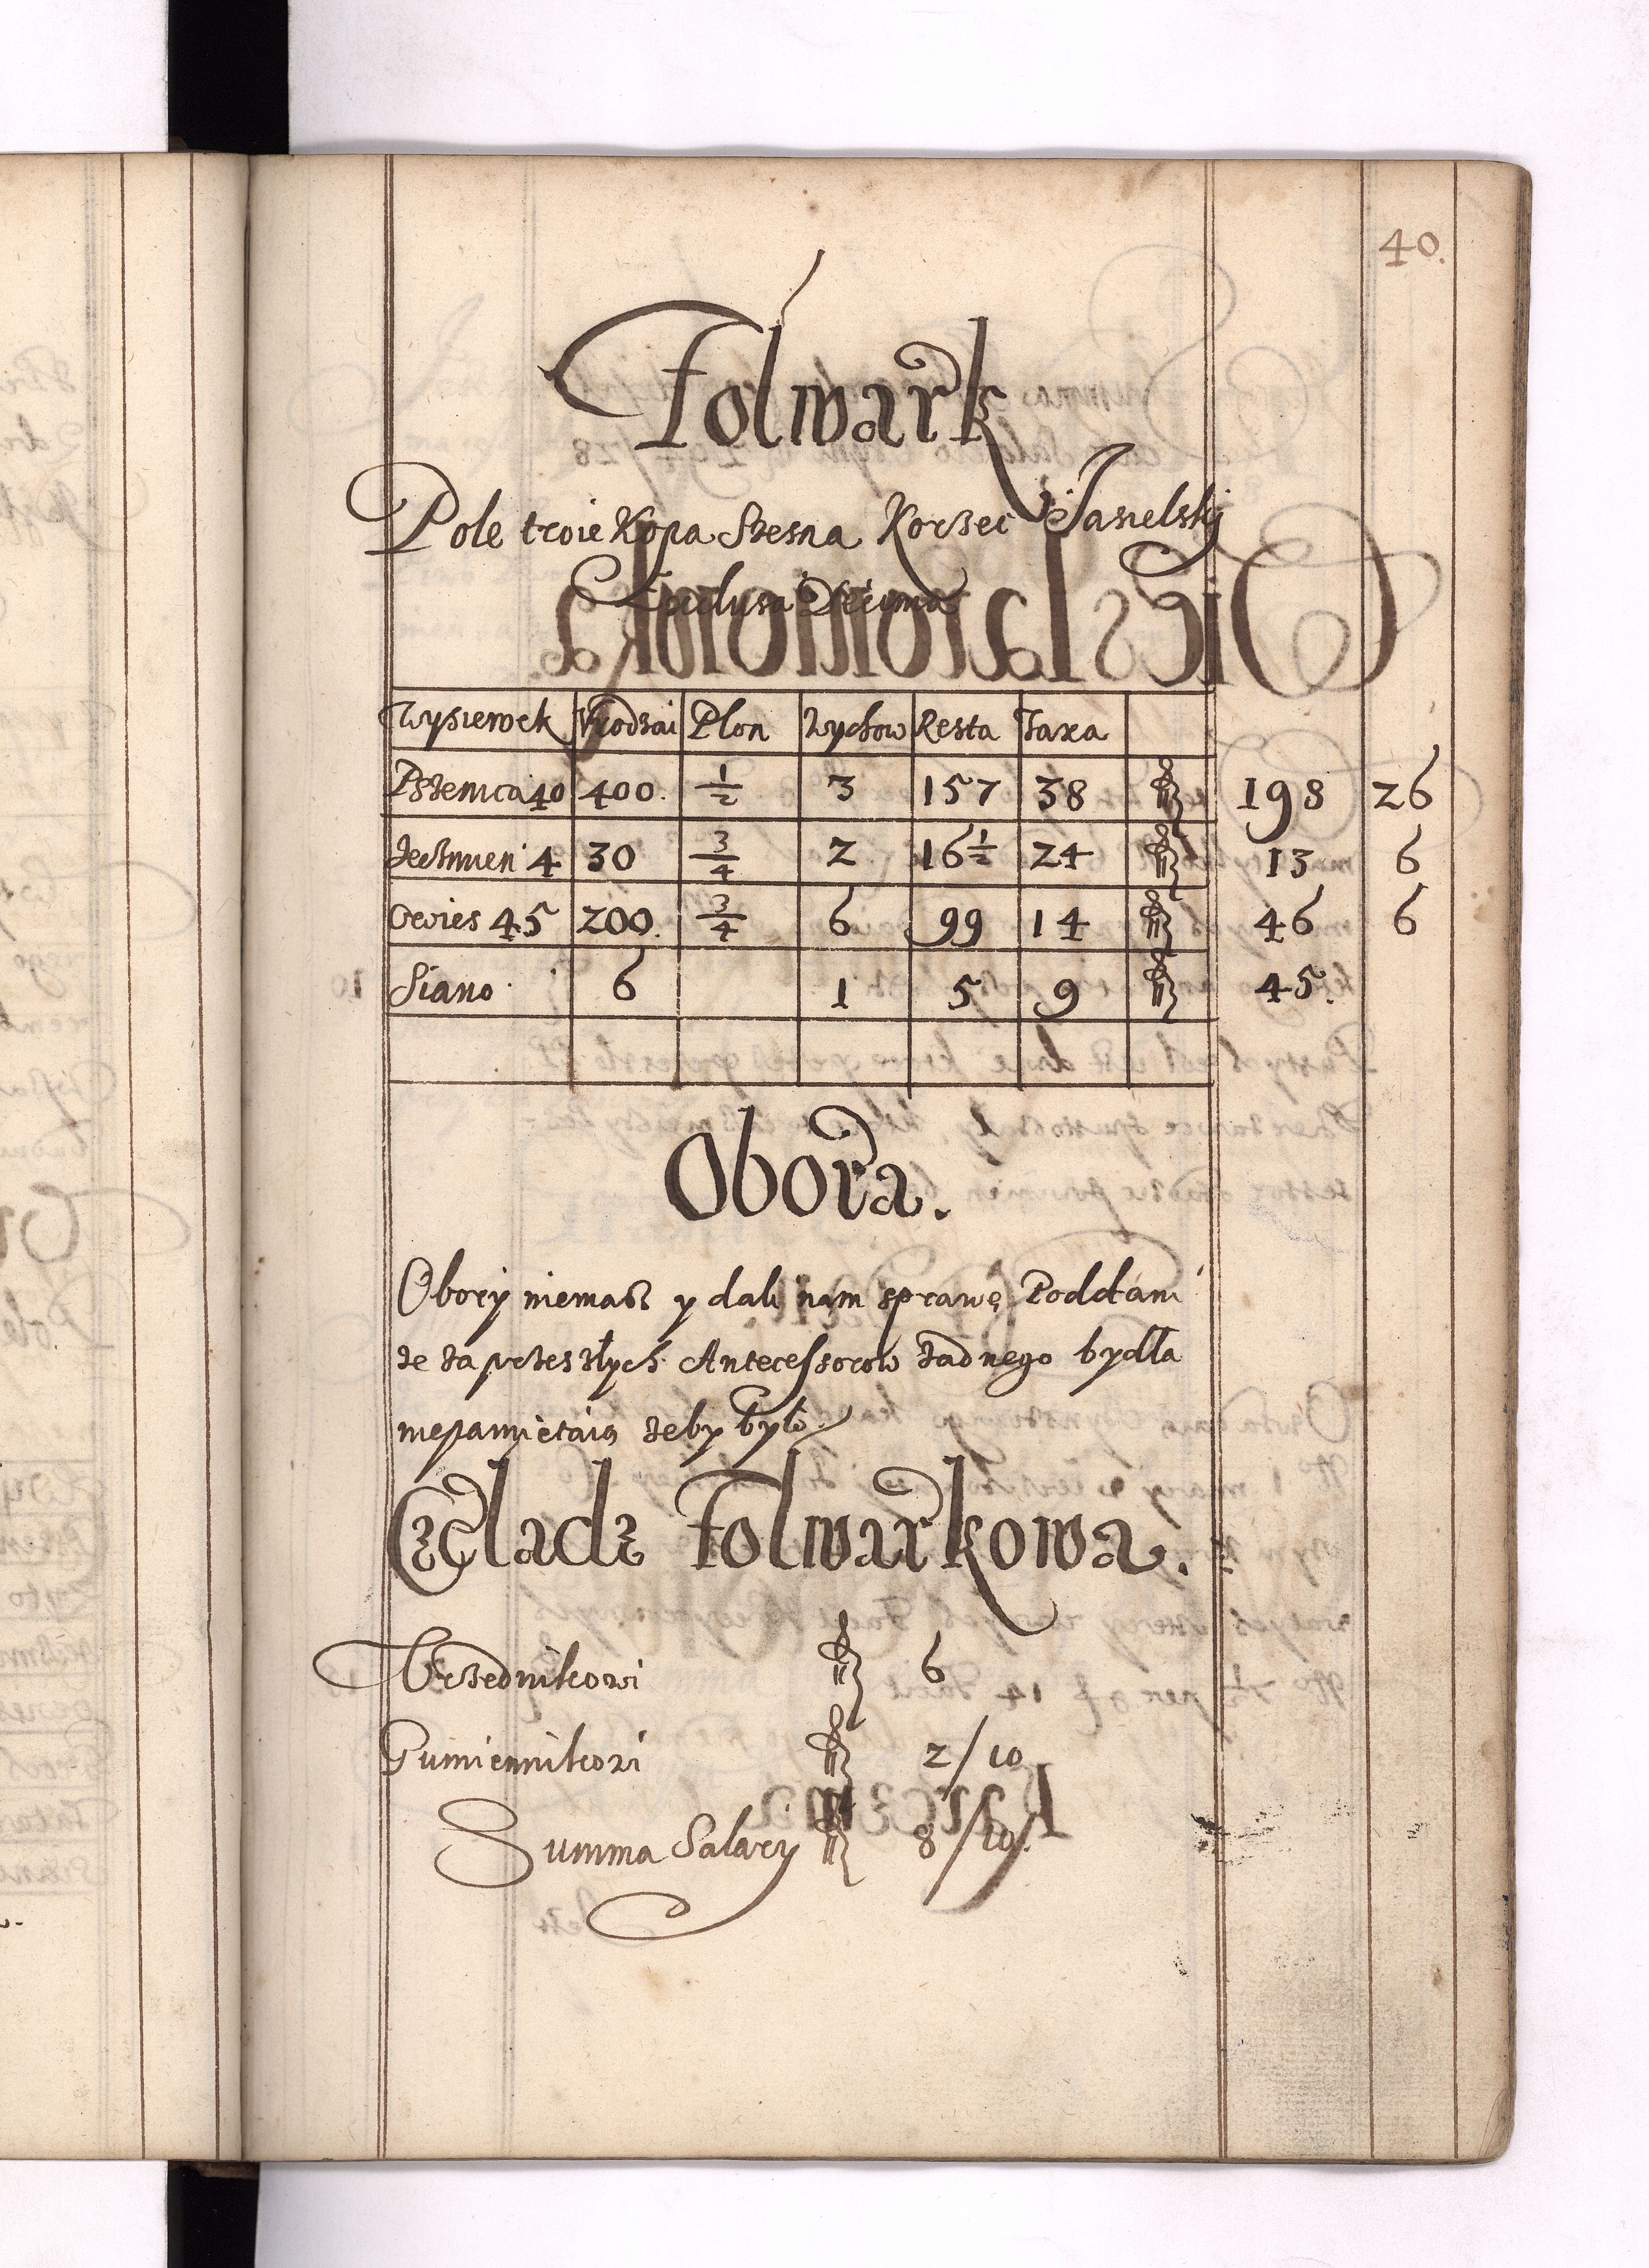 40.
Folwark
Pole troie Kopa Szesna Korzec Jasielskj
Decima
Wysiewek Vrodzai Plon Wychow Resta Taxa
Pszenica 40 400. 1/2 3 157 38 198 26
Jeczmien 4 30 3/4 2 16 1/2 24 13 6
Owies 45 200. 3/4 6 99 14 46 6
Siano 6 1 5 9 45.
Obora.
Obory niemasz y dali nam sprawę Poddani
ze zaprzeszłych Antecessorow zadnego bydła
niepamiętaią zeby było
Czeladz Folwarkowa.
Vrzednikowi 6
Gumiennikowi 2/10
Summa Salary 8/10.